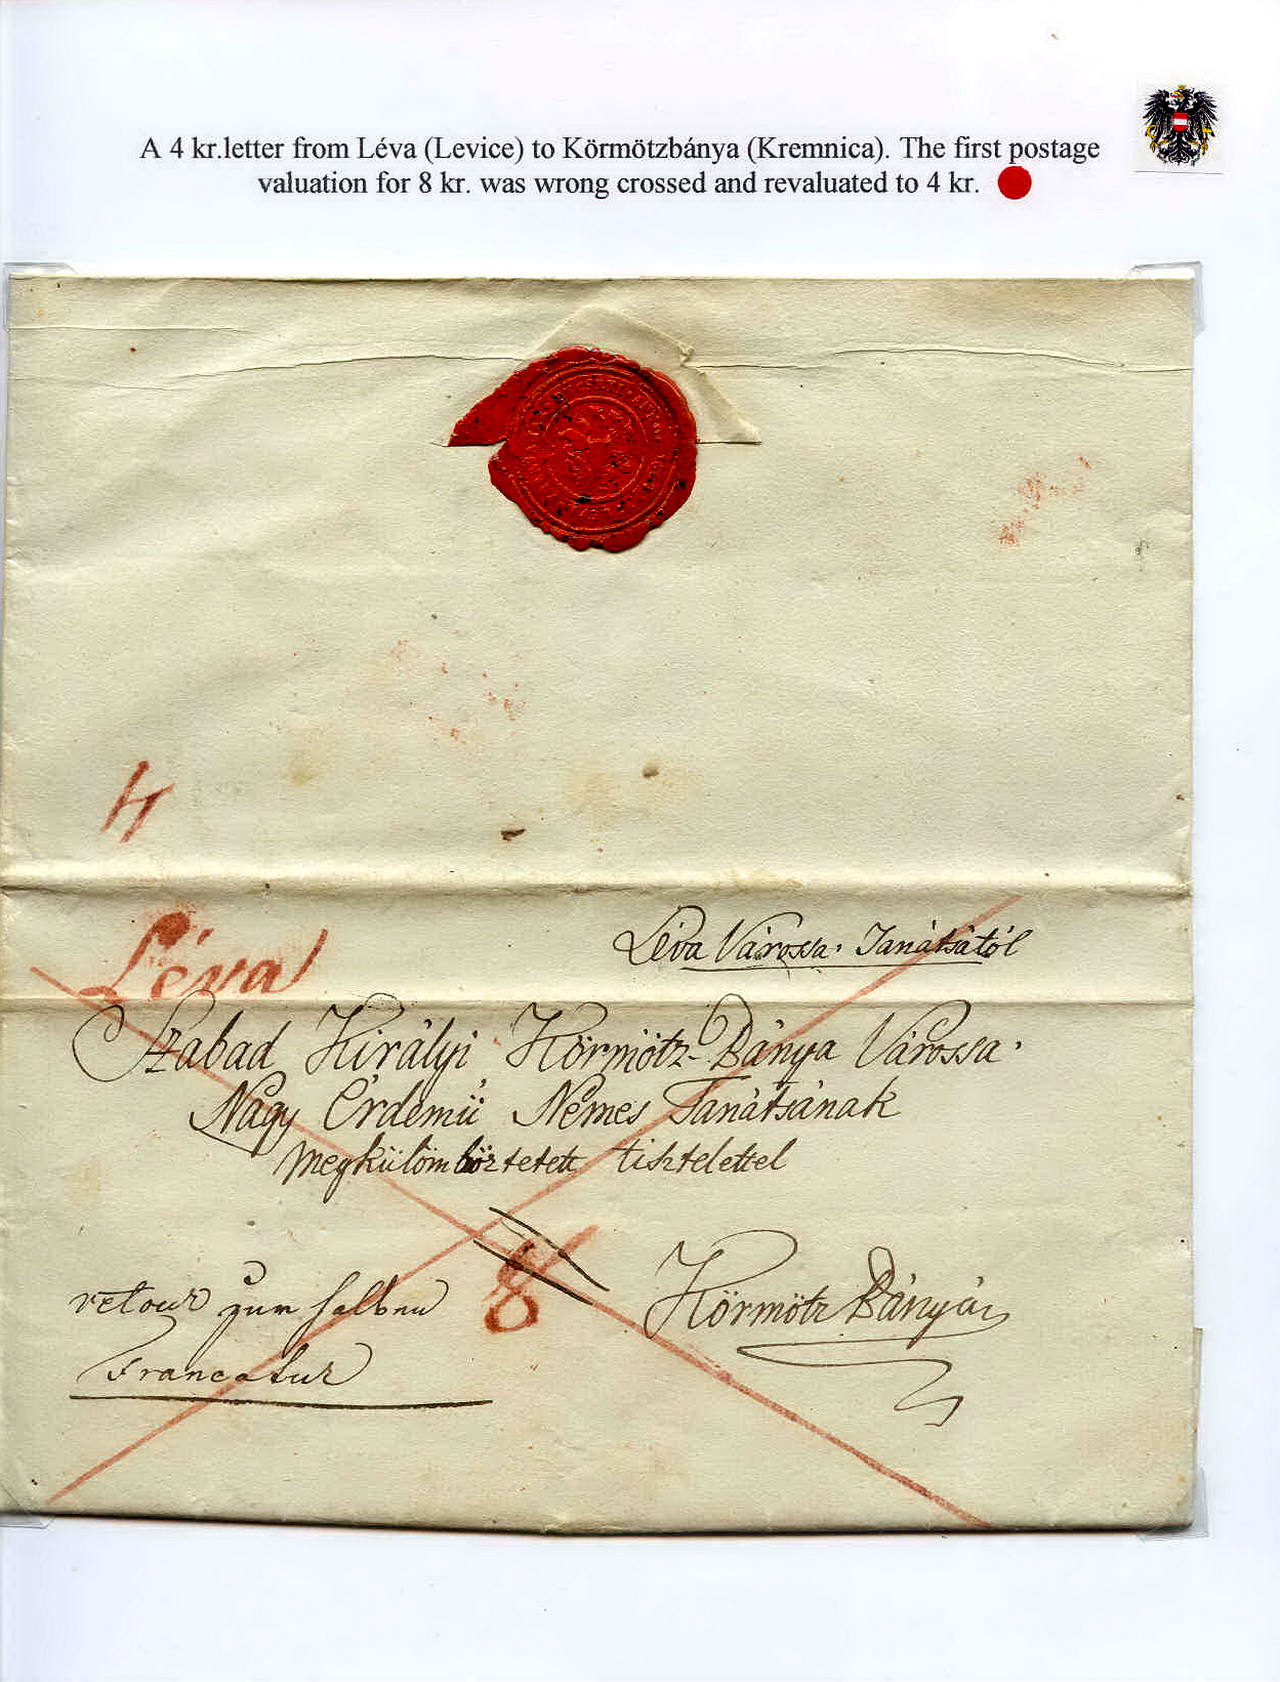 A 4 kr.letter from Léva (Levice) to Körmötzbánya (Kremnica). The first postage
valuation for 8 kr. was wrong crossed and revaluated to 4 kr.
4
Léva
Léva Várossa Tanátsától
Szabad Királyi Körmötz-Bánya Várossa
Nagy Érdemű Nemes Tanátsának
Megkülömböztetett tisztelettel
8
retour zum halben
Francatur
Körmötz Bányán